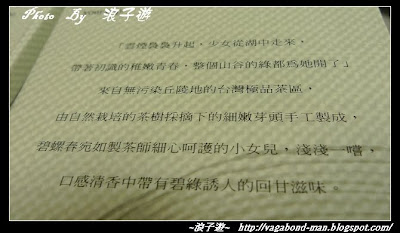 Photo By 浪子遊
「雲煙裊裊升起，少女從湖中走來，
帶著初識的稚嫩青春，整個山谷的綠都為她開了」
來自無污染丘陵地的台灣極品茶區，
由自然栽培的茶樹採摘下的細嫩芽頭手工製成，
碧螺春宛如製茶師細心呵護的小女兒，淺淺一嚐，
口感清香中帶有碧綠誘人的回甘滋味。
~浪子遊~ http://vagabond-man.blogspot.com/